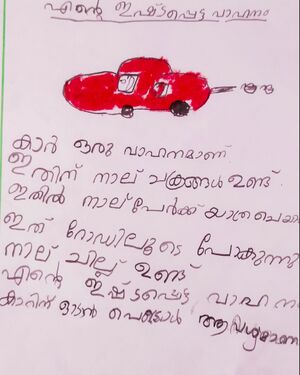 എന്റെ ഇഷ്ടപ്പെട്ട വാഹനം
കാർ ഒരു വാഹനമാണ്.
ഇതിന് നാല് ചക്രങ്ങൾ ഉണ്ട്.
ഇതിൽ നാല് പേർക്ക് യാത്ര ചെയ്യ
ഇത് റോഡിലൂടെ പോകുന്നു
നാല് ചില്ല് ഉണ്ട്
എന്റെ ഇഷ്ടപ്പെട്ട വാഹന
കാറിന് ഓടാൻ പെട്രോൾ ആവശ്യമാണ